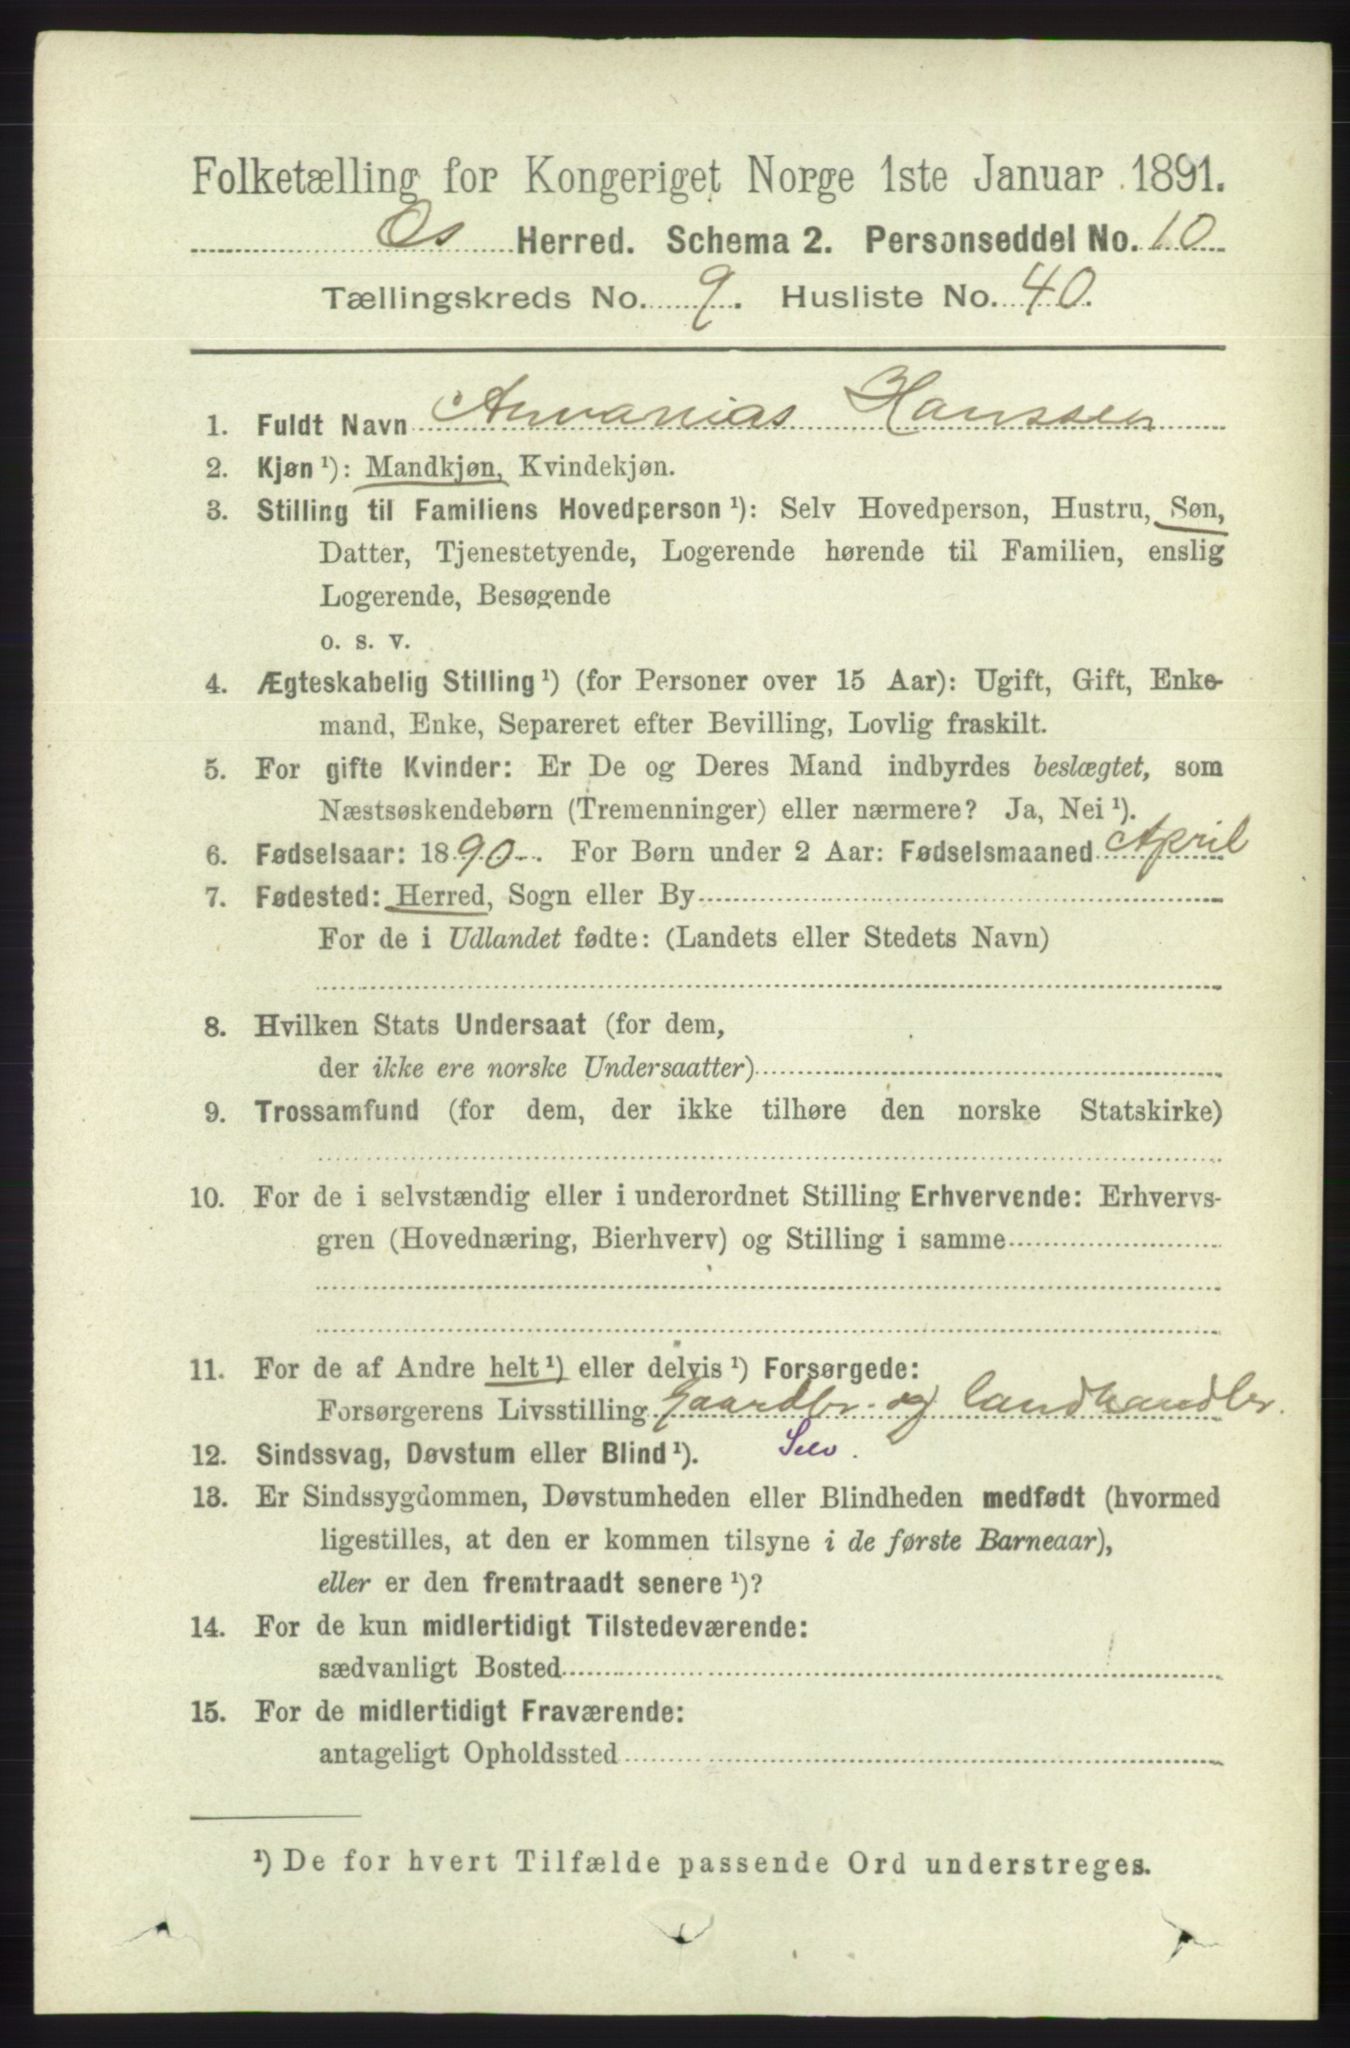 Folketælling for Kongeriget Norge 1ste Januar 1891.
Os Herred. Schema 2. Personseddel No. 10
Tællingskreds No. 9. Husliste No. 40.
1. Fuldt Navn Annanias Hanssen
2. Kjøn ¹): Mandkjøn, Kvindekjøn.
3. Stilling til Familiens Hovedperson ¹): Selv Hovedperson, Hustru, Søn,
Datter, Tjenestetyende, Logerende hørende til Familien, enslig
Logerende, Besøgende
o. s. v.
4. Ægteskabelig Stilling ¹) (for Personer over 15 Aar): Ugift, Gift, Enke-
mand, Enke, Separeret efter Bevilling, Lovlig fraskilt.
5. For gifte Kvinder: Er De og Deres Mand indbyrdes beslægtet, som
Næstsøskendebørn (Tremenninger) eller nærmere? Ja, Nei ¹).
6. Fødselsaar: 1890. For Børn under 2 Aar: Fødselsmaaned April
7. Fødested: Herred, Sogn eller By
For de i Udlandet fødte: (Landets eller Stedets Navn)
8. Hvilken Stats Undersaat (for dem,
der ikke ere norske Undersaatter)
9. Trossamfund (for dem, der ikke tilhøre den norske Statskirke)
10. For de i selvstændig eller i underordnet Stilling Erhvervende: Erhvervs-
gren (Hovednæring, Bierhverv) og Stilling i samme
11. For de af Andre helt ¹) eller delvis ¹) Forsørgede:
Forsørgerens Livsstilling Gaardbr. og landhandler.
12. Sindssvag, Døvstum eller Blind ¹).
13. Er Sindssygdommen, Døvstumheden eller Blindheden medfødt (hvormed
ligestilles, at den er kommen tilsyne i de første Barneaar),
eller er den fremtraadt senere ¹)?
14. For de kun midlertidigt Tilstedeværende:
sædvanligt Bosted
15. For de midlertidigt Fraværende:
antageligt Opholdssted
¹) De for hvert Tilfælde passende Ord understreges.